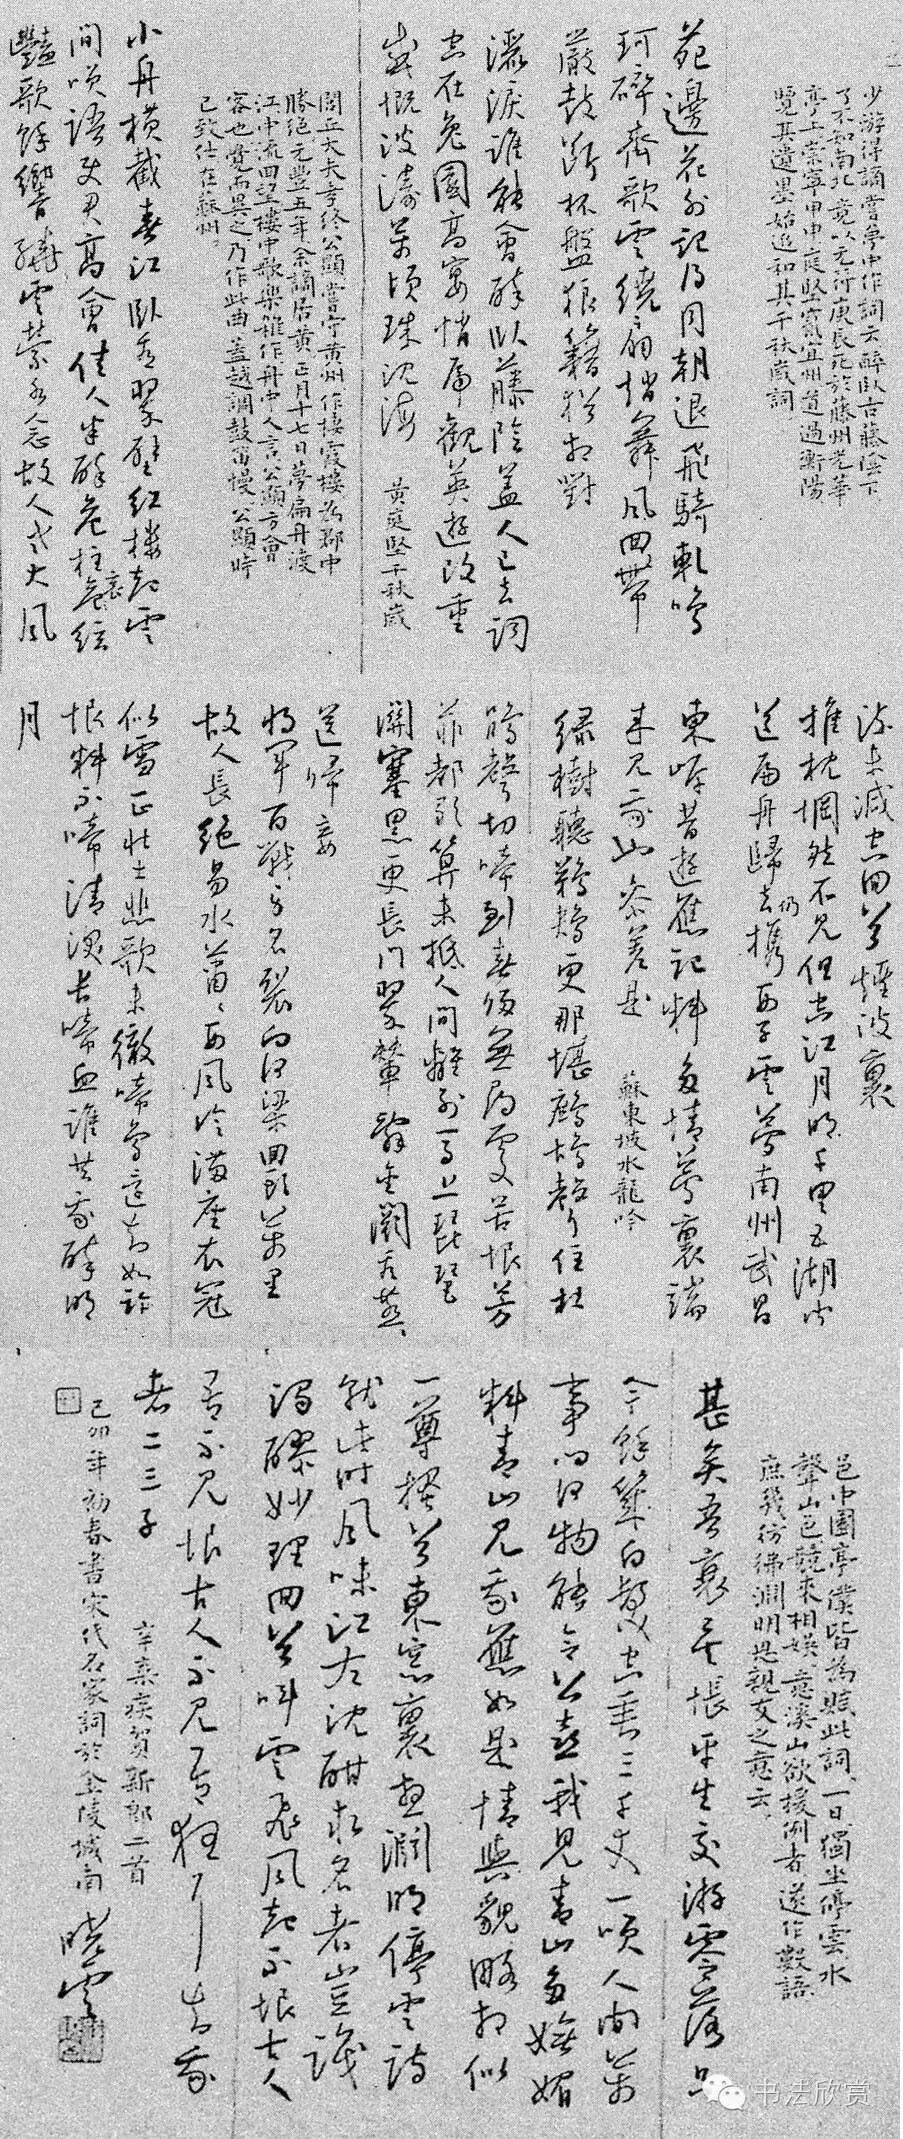 少游得謫嘗夢中作詞云醉臥古藤陰下
了不知南北竟以元符庚辰死於藤州光華
亭上崇寧甲申庭堅竄宜州道過衡陽
覽其遺墨始追和其千秋歲詞
苑邊花外記得同朝退飛騎軋鳴
珂碎齊歌雲繞扇趙舞風回帶
嚴鼓斷杯盤狼籍猶相對
灑淚誰能會醉臥藤陰蓋人已去詞
空在兔園高宴悄虎觀英遊改重
感慨波濤萬頃珠沈海
黃庭堅千秋歲
閭丘大夫孝終公顯嘗守黃州作棲霞樓為郡中
勝絕元豐五年余謫居黃正月十七日夢扁舟渡
江中流回望樓中歌樂雜作舟中人言公顯方會
客也覺而異之乃作此曲蓋越調鼓笛慢公顯時
已致仕在蘇州
小舟橫截春江臥看翠壁紅樓起雲
間笑語使君高會佳人半醉危柱哀絃
豔歌餘響繞雲縈水念故人老大風
流未減空回首煙波裏
推枕惘然不見但空江月明千里五湖聞
道扁舟歸去仍攜西子雲夢南州武昌
東岸昔遊應記料多情夢裏端
來見我山參差是
蘇東坡水龍吟
綠樹聽鵜鴂更那堪鷓鴣聲住杜
鵑聲切啼到春歸無尋處苦恨芳
菲都歇算未抵人間離別馬上琵琶
關塞黑更長門翠輦辭金闕看燕燕
送歸妾
將軍百戰身名裂向河梁回頭萬里
故人長絕易水蕭蕭西風冷滿座衣冠
似雪正壯士悲歌未徹啼鳥還知如許
恨料不啼清淚長啼血誰共我醉明
月
邑中園亭僕皆為賦此詞一日獨坐停雲水
聲山色競來相娛意溪山欲援例者遂作數語
庶幾彷彿淵明思親友之意云
甚矣吾衰矣悵平生交遊零落只
今餘幾白髮空垂三千丈一笑人間萬
事問何物能令公喜我見青山多嫵媚
料青山見我應如是情與貌略相似
一尊搔首東窗裏想淵明停雲詩
就此時風味江左沈酣求名者豈識
濁醪妙理回首叫雲飛風起不恨古人
吾不見恨古人不見吾狂耳知我
者二三子
辛棄疾賀新郎二首
己卯年初春書宋代名家詞於金陵城南
曉雲
书法欣赏